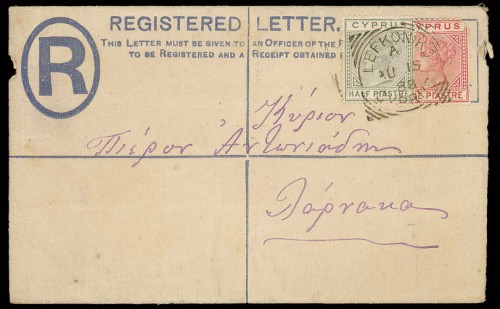 REGISTERED LETTER.
THIS LETTER MUST BE GIVEN TO AN OFFICER OF THE
TO BE REGISTERED AND A RECEIPT OBTAINED
R
CYPRUS
HALF PIASTRE
PRUS
PIASTRE
LEFKONIKO
A
AU 15
88
CYPRUS
Κύριον
Πιέρον Αντωνιάδην
Λάρνακα